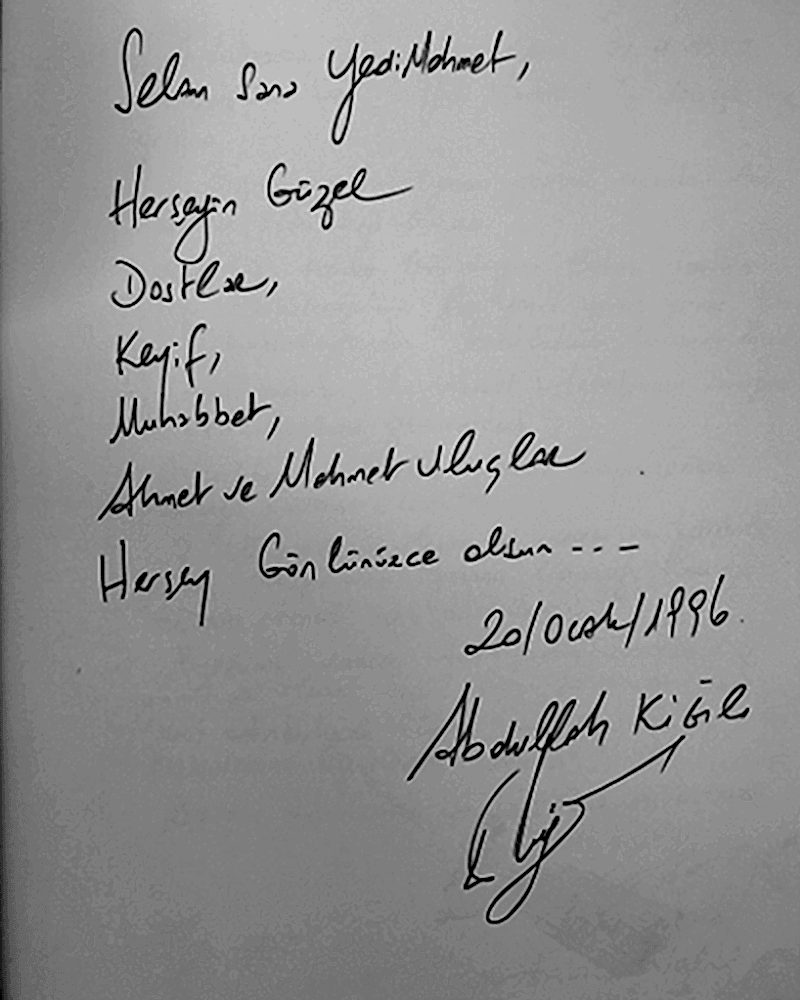 Selam Sana Yedi Mehmet,
Herşeyin Güzel
Dostlar,
Keyif,
Muhabbet,
Ahmet ve Mehmet Uluçlar
Herşey Gönlünüzce olsun ...
20/Ocak/1996.
Abdullah Kiğılı